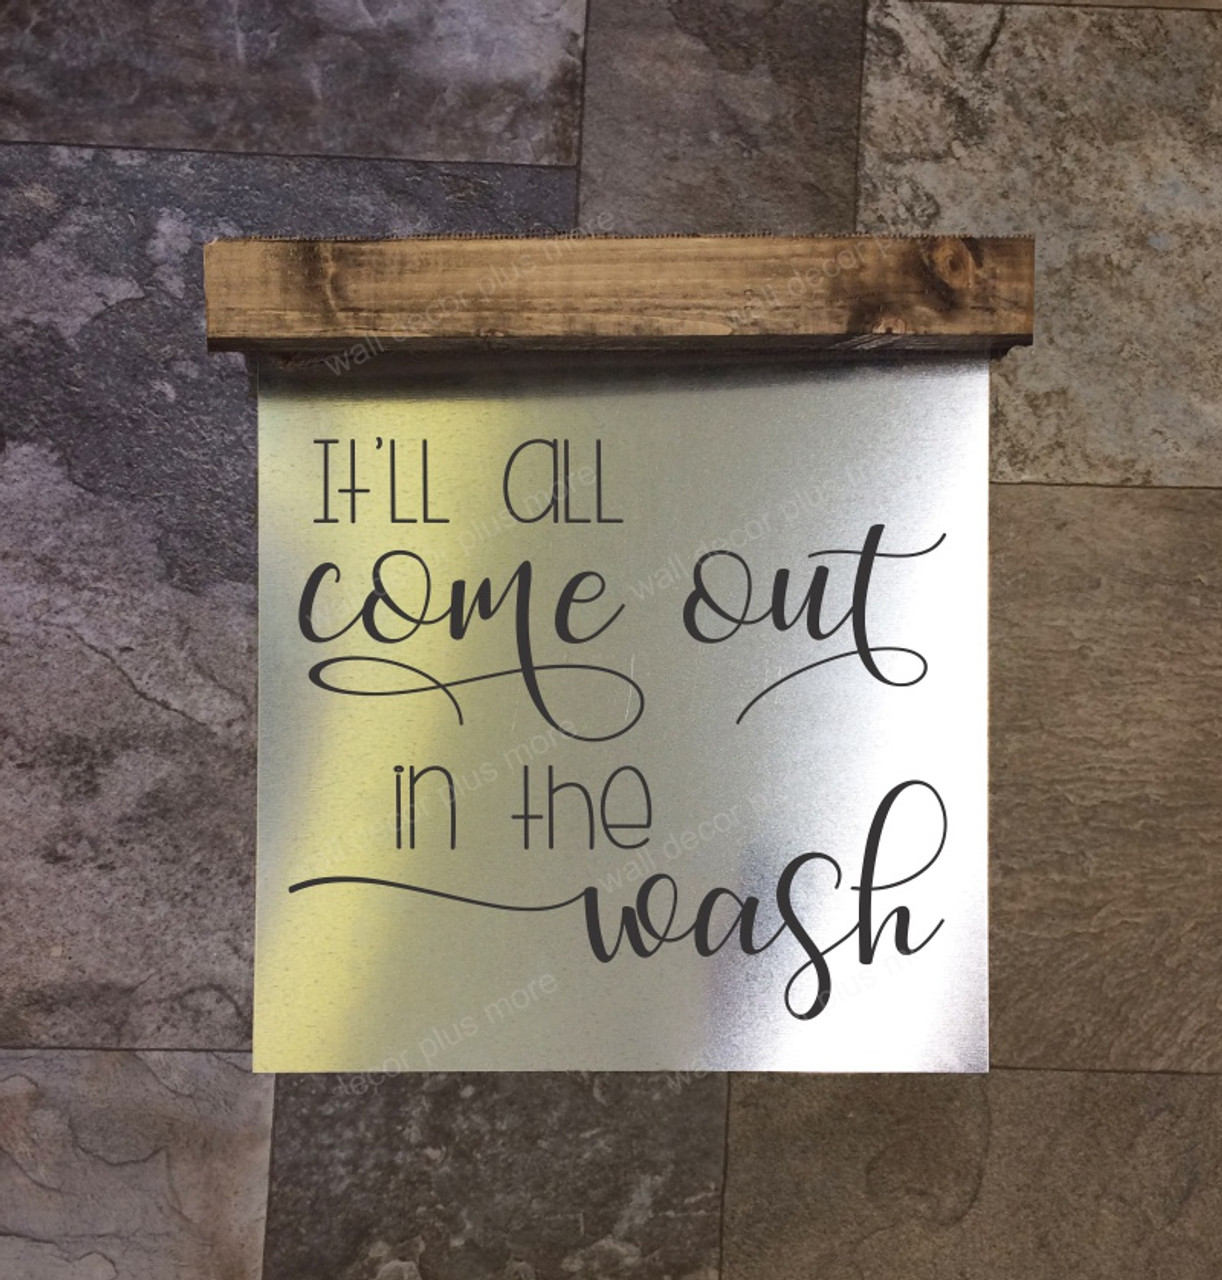 It'll all
come out
in the
wash
wall decor plus more
wall decor plus more
wall decor plus more
wall decor plus more
wall decor plus more
wall decor
decor plus more